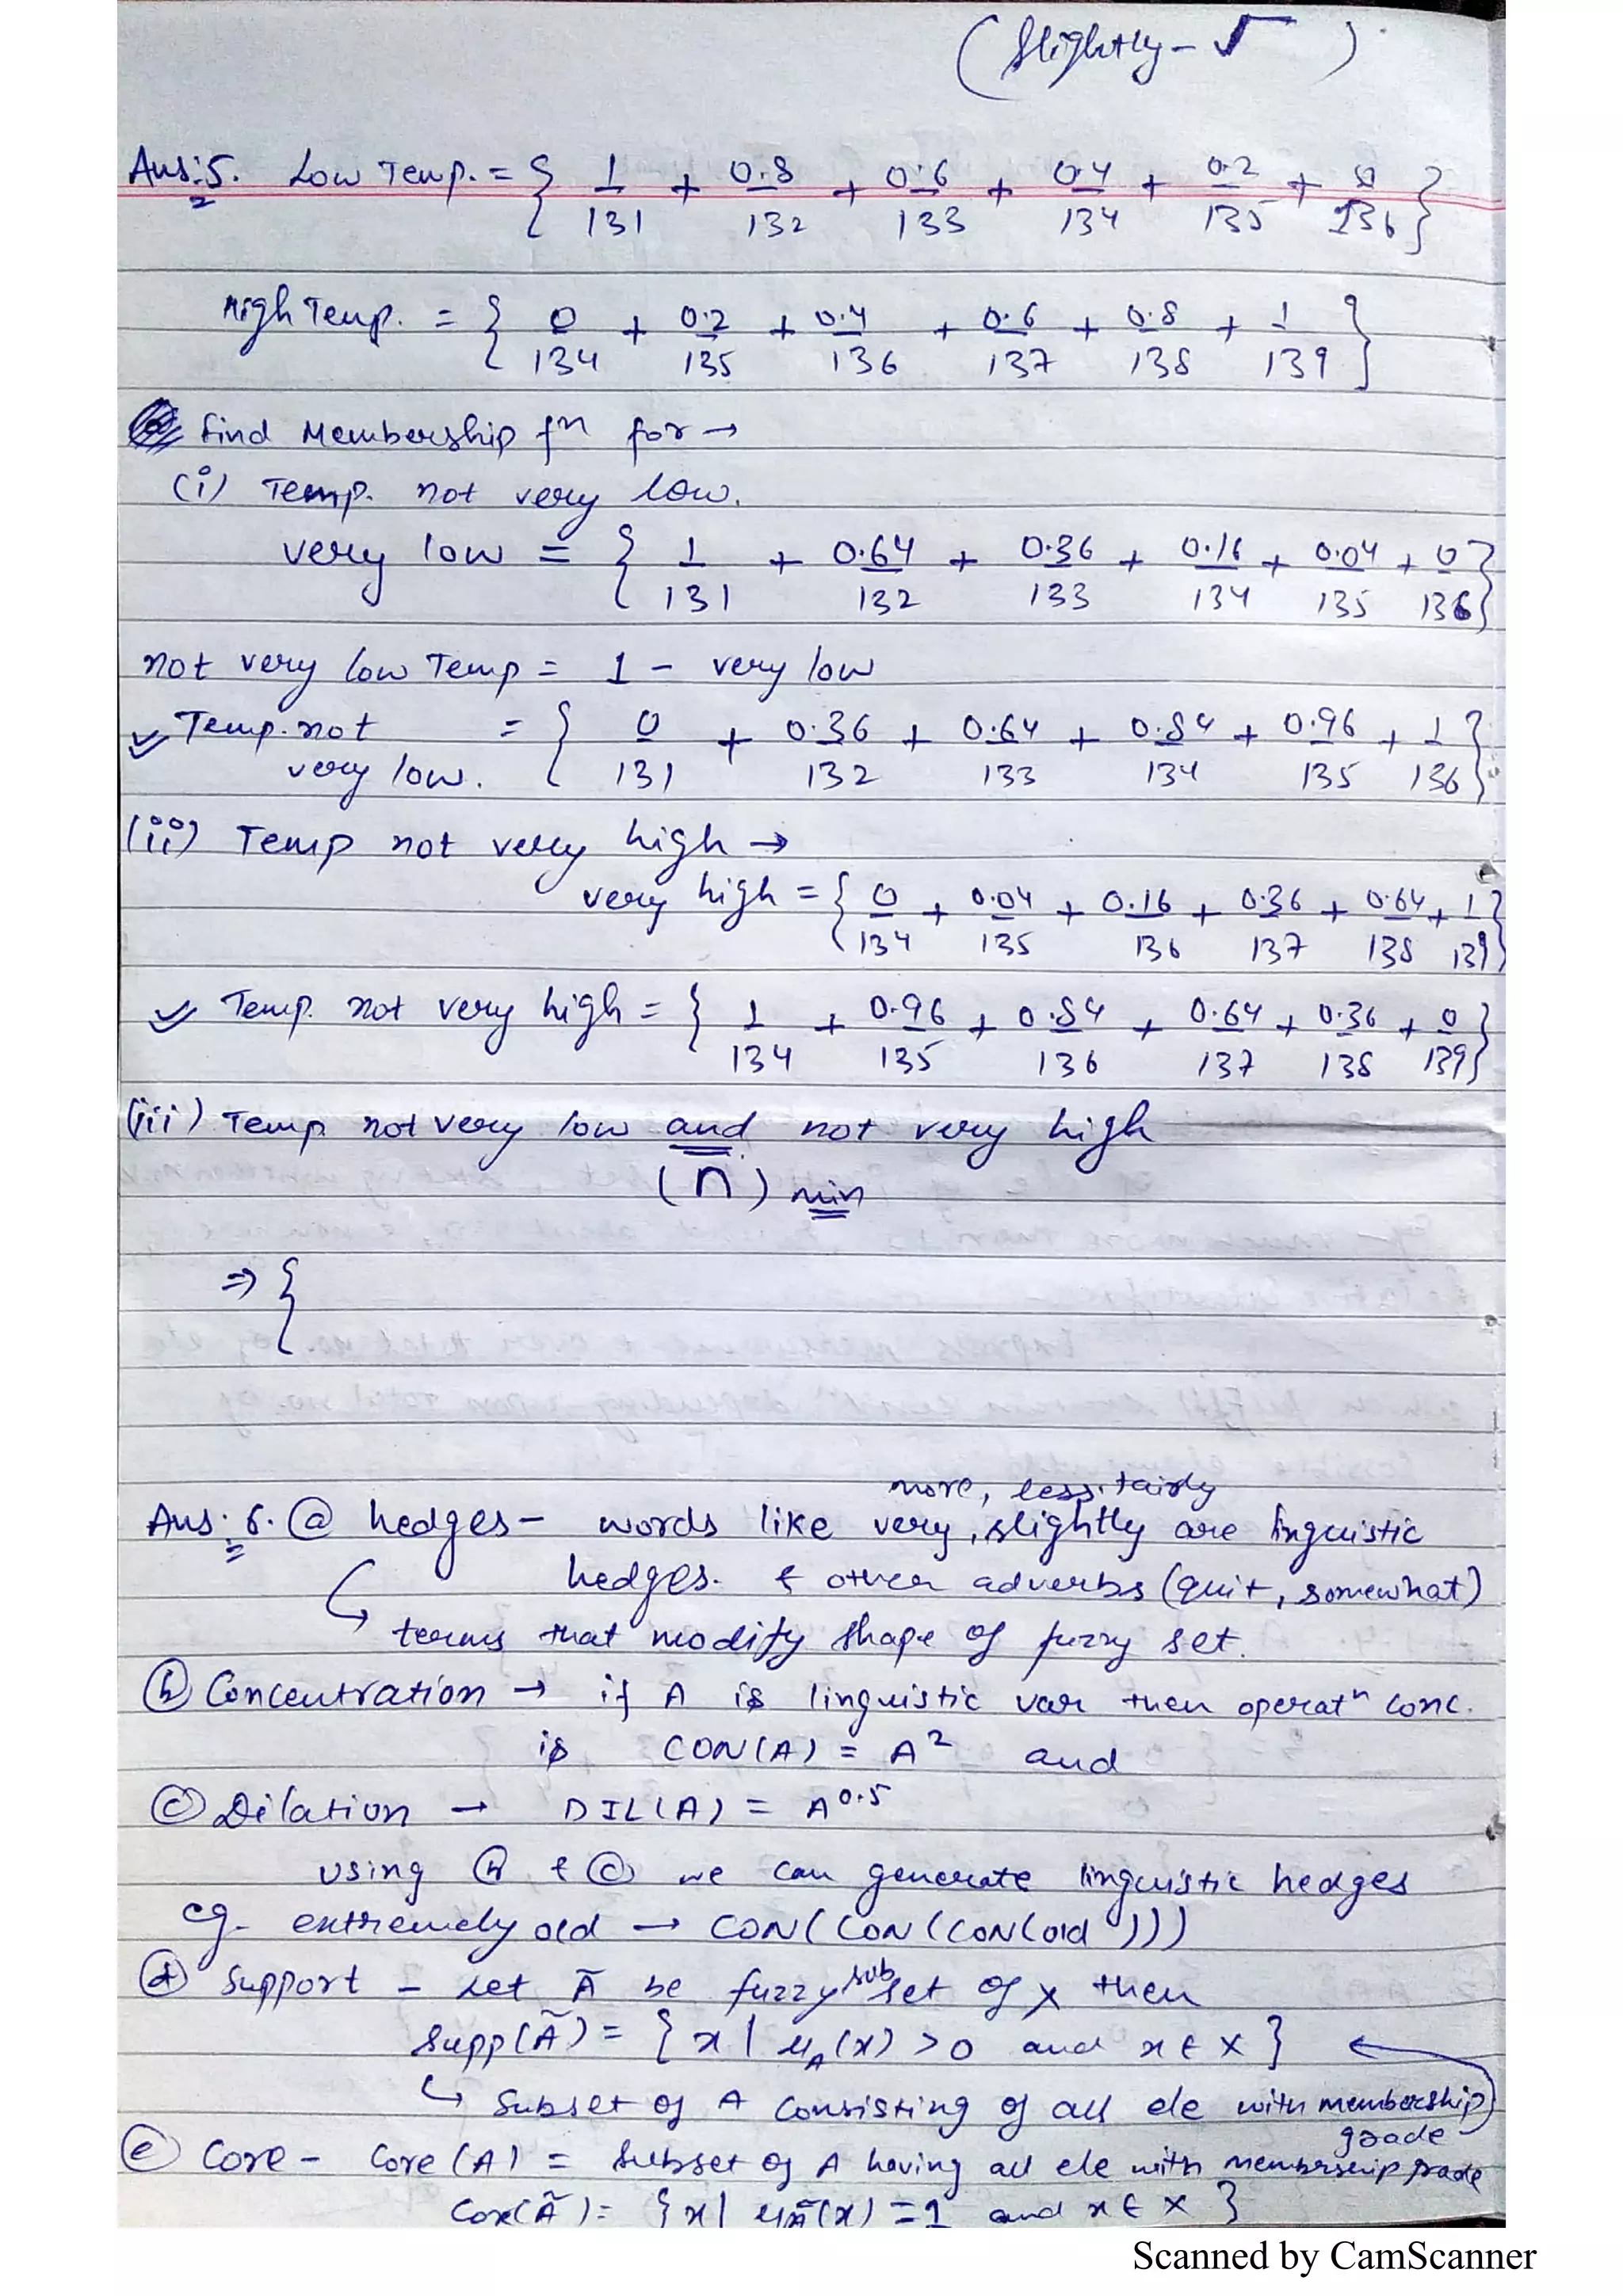 (Slightly - √ )
Ans:5. Low Temp. = { 1/131 + 0.8/132 + 0.6/133 + 0.4/134 + 0.2/135 + 0/136 }
High Temp. = { 0/134 + 0.2/135 + 0.4/136 + 0.6/137 + 0.8/138 + 1/139 }
find Membership fn for →
(i) Temp. not very low.
very low = { 1/131 + 0.64/132 + 0.36/133 + 0.16/134 + 0.04/135 + 0/136 }
not very low Temp = 1 - very low
Temp. not very low. = { 0/131 + 0.36/132 + 0.64/133 + 0.84/134 + 0.96/135 + 1/136 }
(ii) Temp not very high →
very high = { 0/134 + 0.04/135 + 0.16/136 + 0.36/137 + 0.64/138 + 1/139 }
Temp. not very high = { 1/134 + 0.96/135 + 0.84/136 + 0.64/137 + 0.36/138 + 0/139 }
(iii) Temp not very low and not very high
(∩) min
⇒ {
more, less, fairly
Ans: 6. ⓐ hedges - words like very, slightly are linguistic
hedges. & other adverbs (quit, somewhat)
↳ terms that modify shape of fuzzy set.
ⓑ Concentration → if A is linguistic var then operatn conc.
is CON(A) = A² and
ⓒ Dilation → DIL(A) = A^0.5
using ⓑ & ⓒ we can generate linguistic hedges
eg. extremely old → CON(CON(CON(old)))
ⓓ Support - Let Ã be fuzzy subset of X then
Supp(Ã) = { x | μA(x) > 0 and x ∈ X } ←
↳ Subset of A consisting of all ele with membership
grade
ⓔ Core - Core(A) = Subset of A having all ele with membership grade
Core(Ã) = { x | μÃ(x) = 1 and x ∈ X }
Scanned by CamScanner